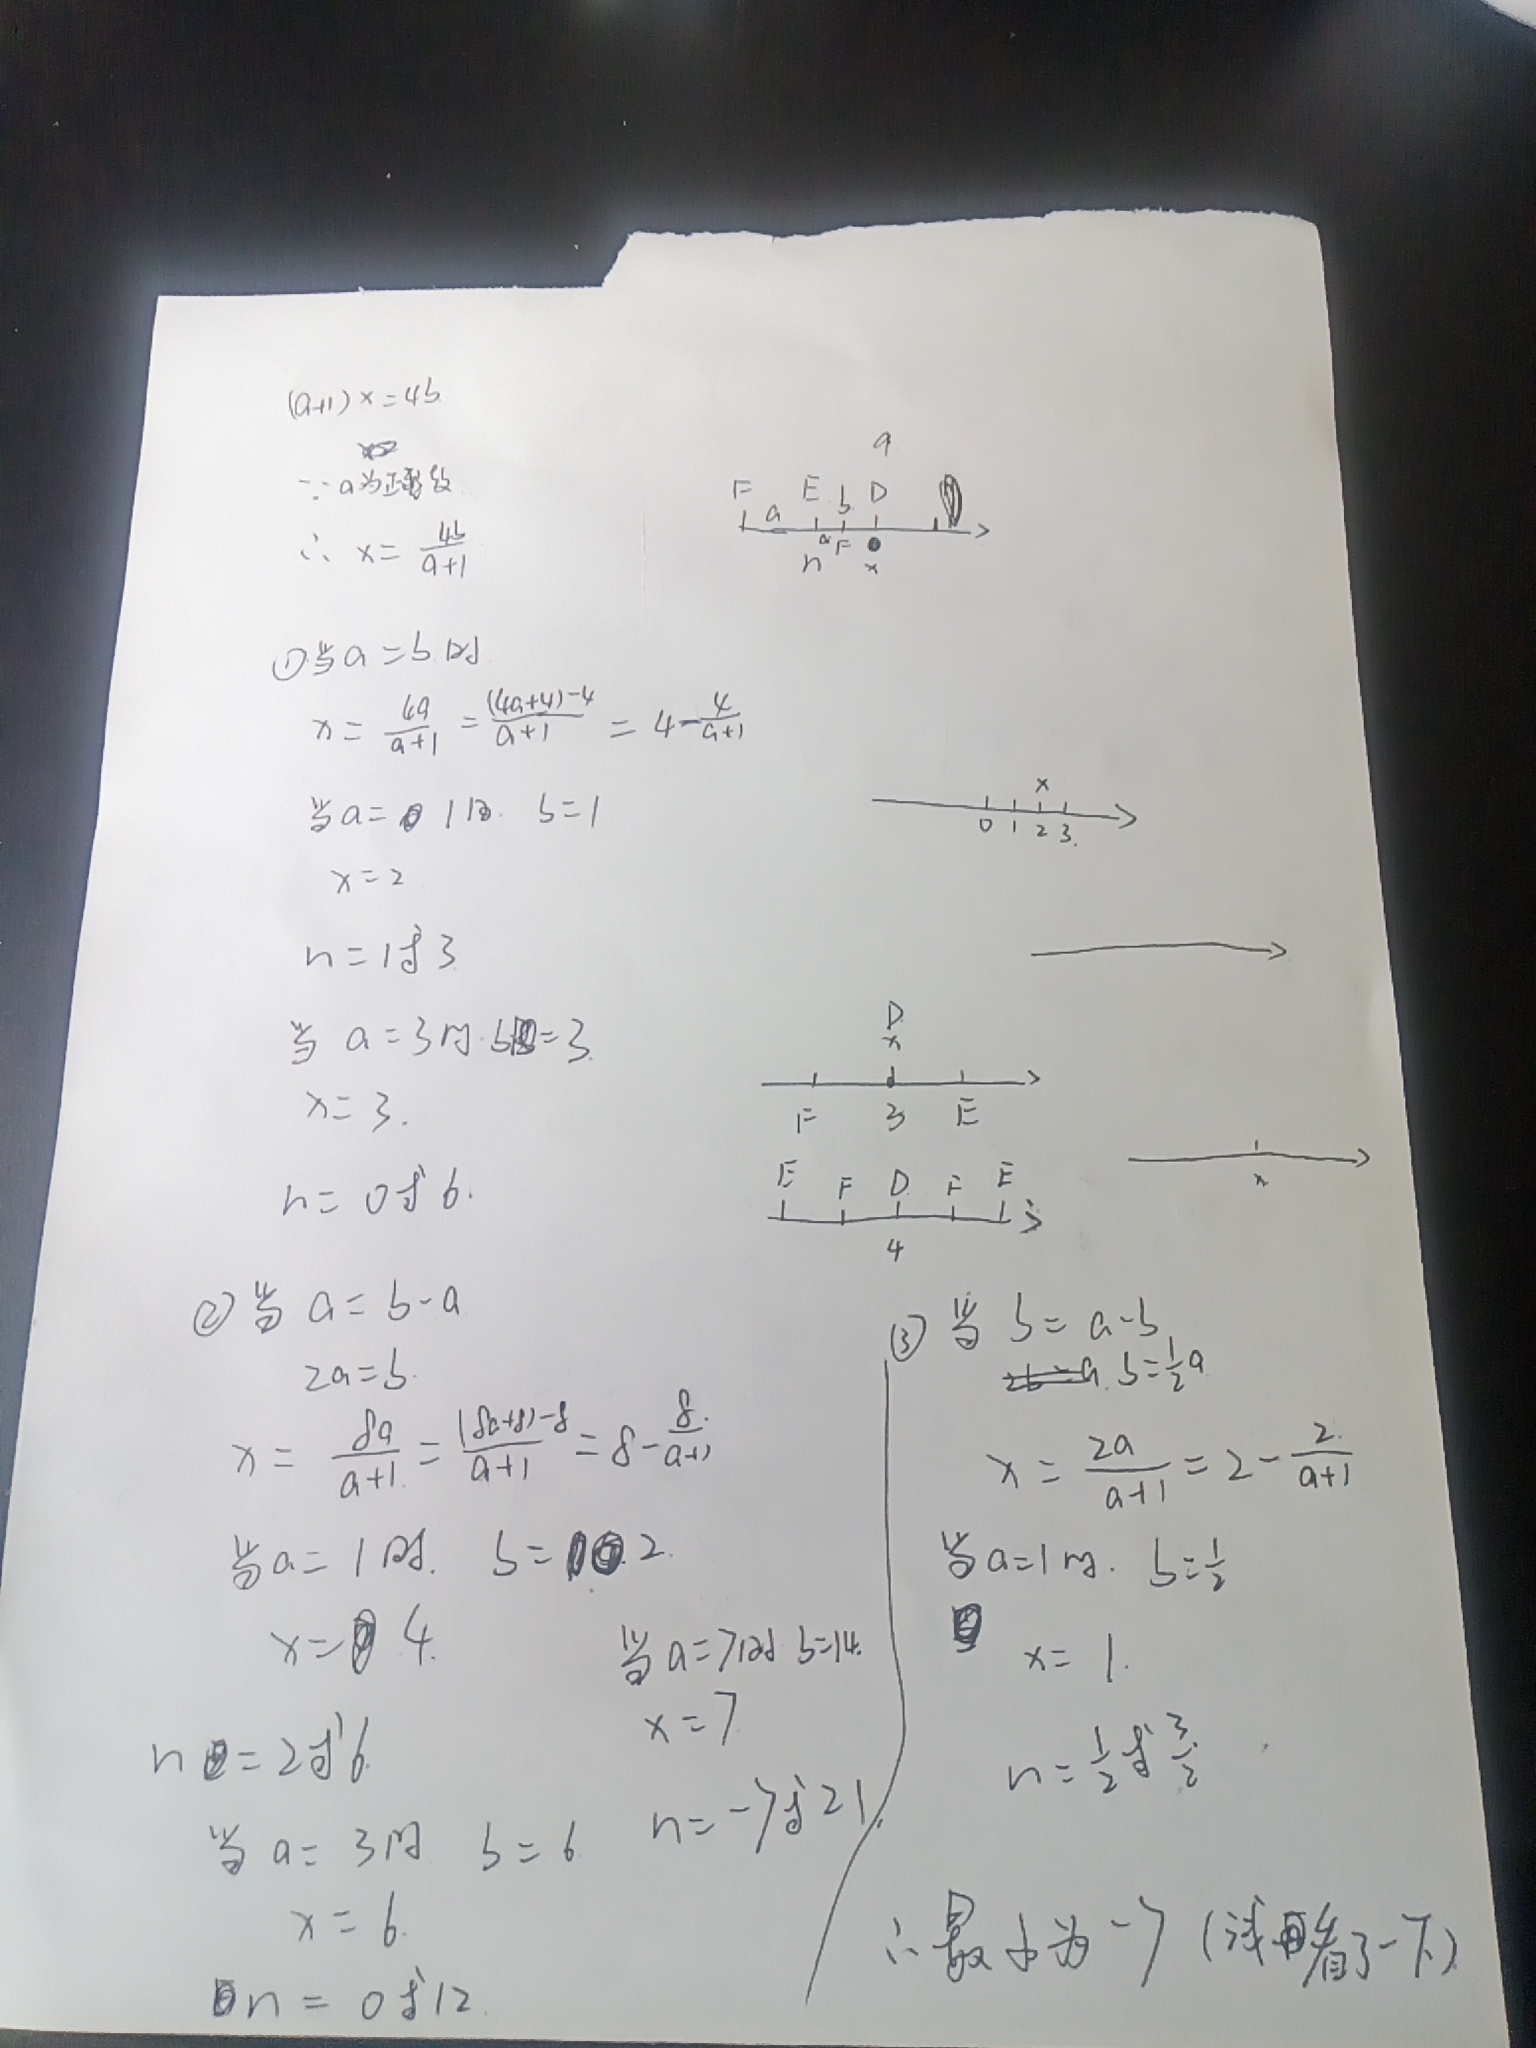 (a+1)x=4b
∵a为正整数
∴ x=4b/(a+1)
a
F a E b D
n a F x
①当a=b时
x=4a/(a+1)=((4a+4)-4)/(a+1)=4-4/(a+1)
当a=1时. b=1
x=2
n=1或3
x
0 1 2 3.
当 a=3时. b=3.
x=3.
n=0或6.
D
x
F 3 E
E F D F E
4
x
②当 a=b-a
2a=b.
x=8a/(a+1)=((8a+8)-8)/(a+1)=8-8/(a+1)
当a=1时. b=2.
x=4.
n=2或6
当a=3时 b=6
x=6.
n=0或12.
当a=7时 b=14.
x=7
n=-7或21.
③当 b=a-b
b=1/2a
x=2a/(a+1)=2-2/(a+1)
当a=1时. b=1/2
x=1.
n=1/2或3/2
∴最小为-7(试看了一下)